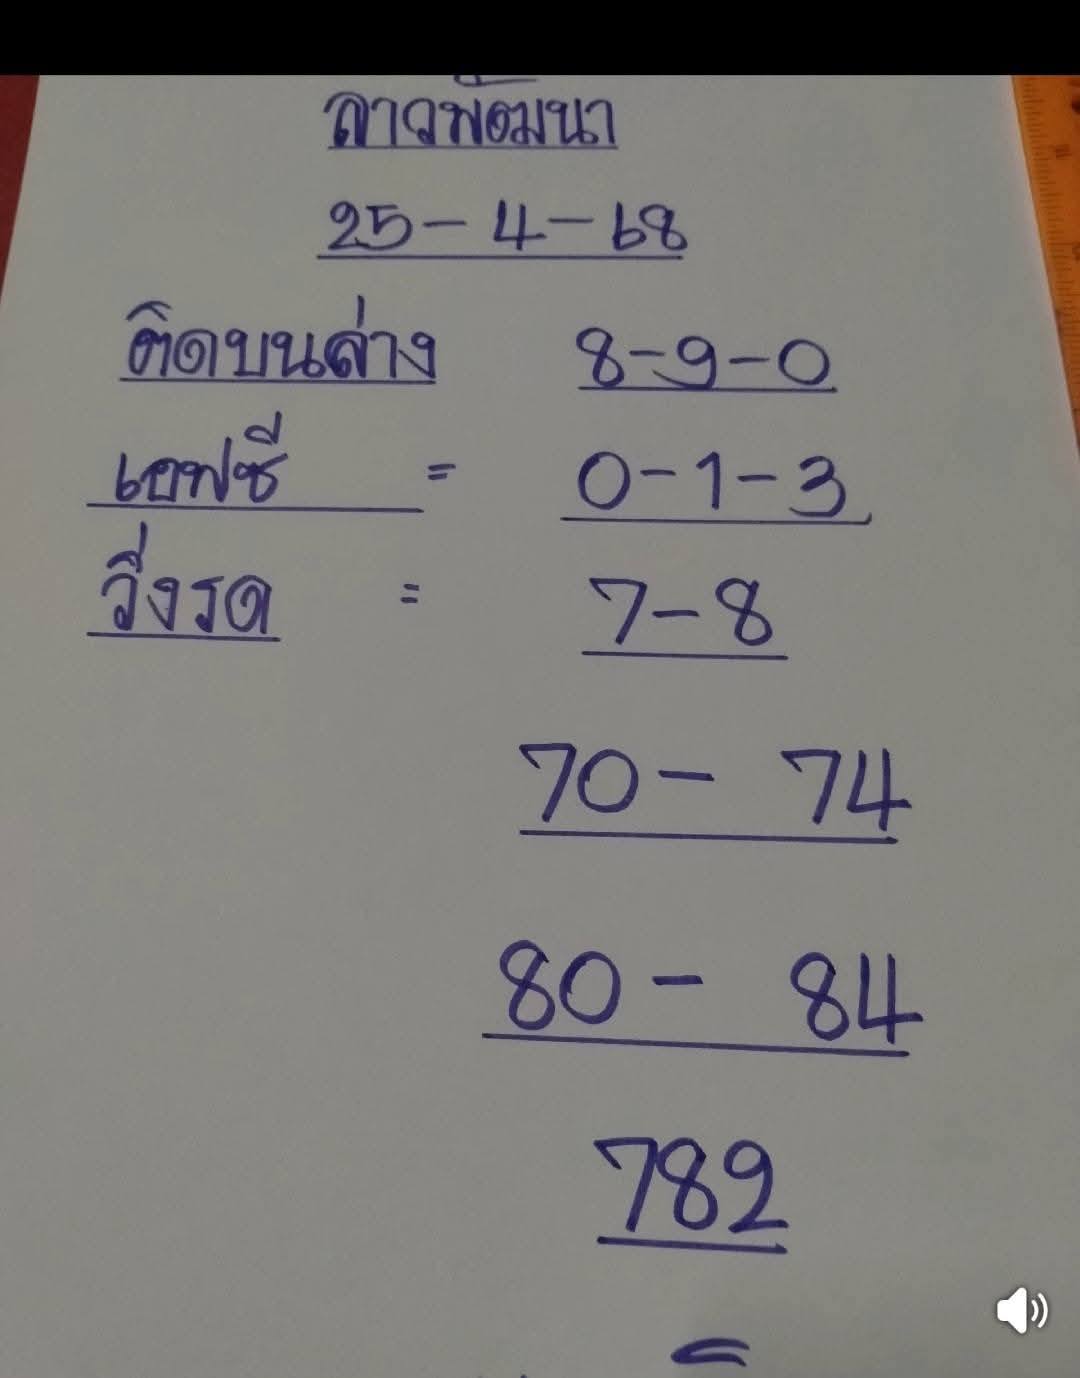 ลาวพัฒนา
25-4-68
ติดบนล่าง 8-9-0
เอฟซี = 0-1-3
วิ่งรูด = 7-8
70- 74
80- 84
782